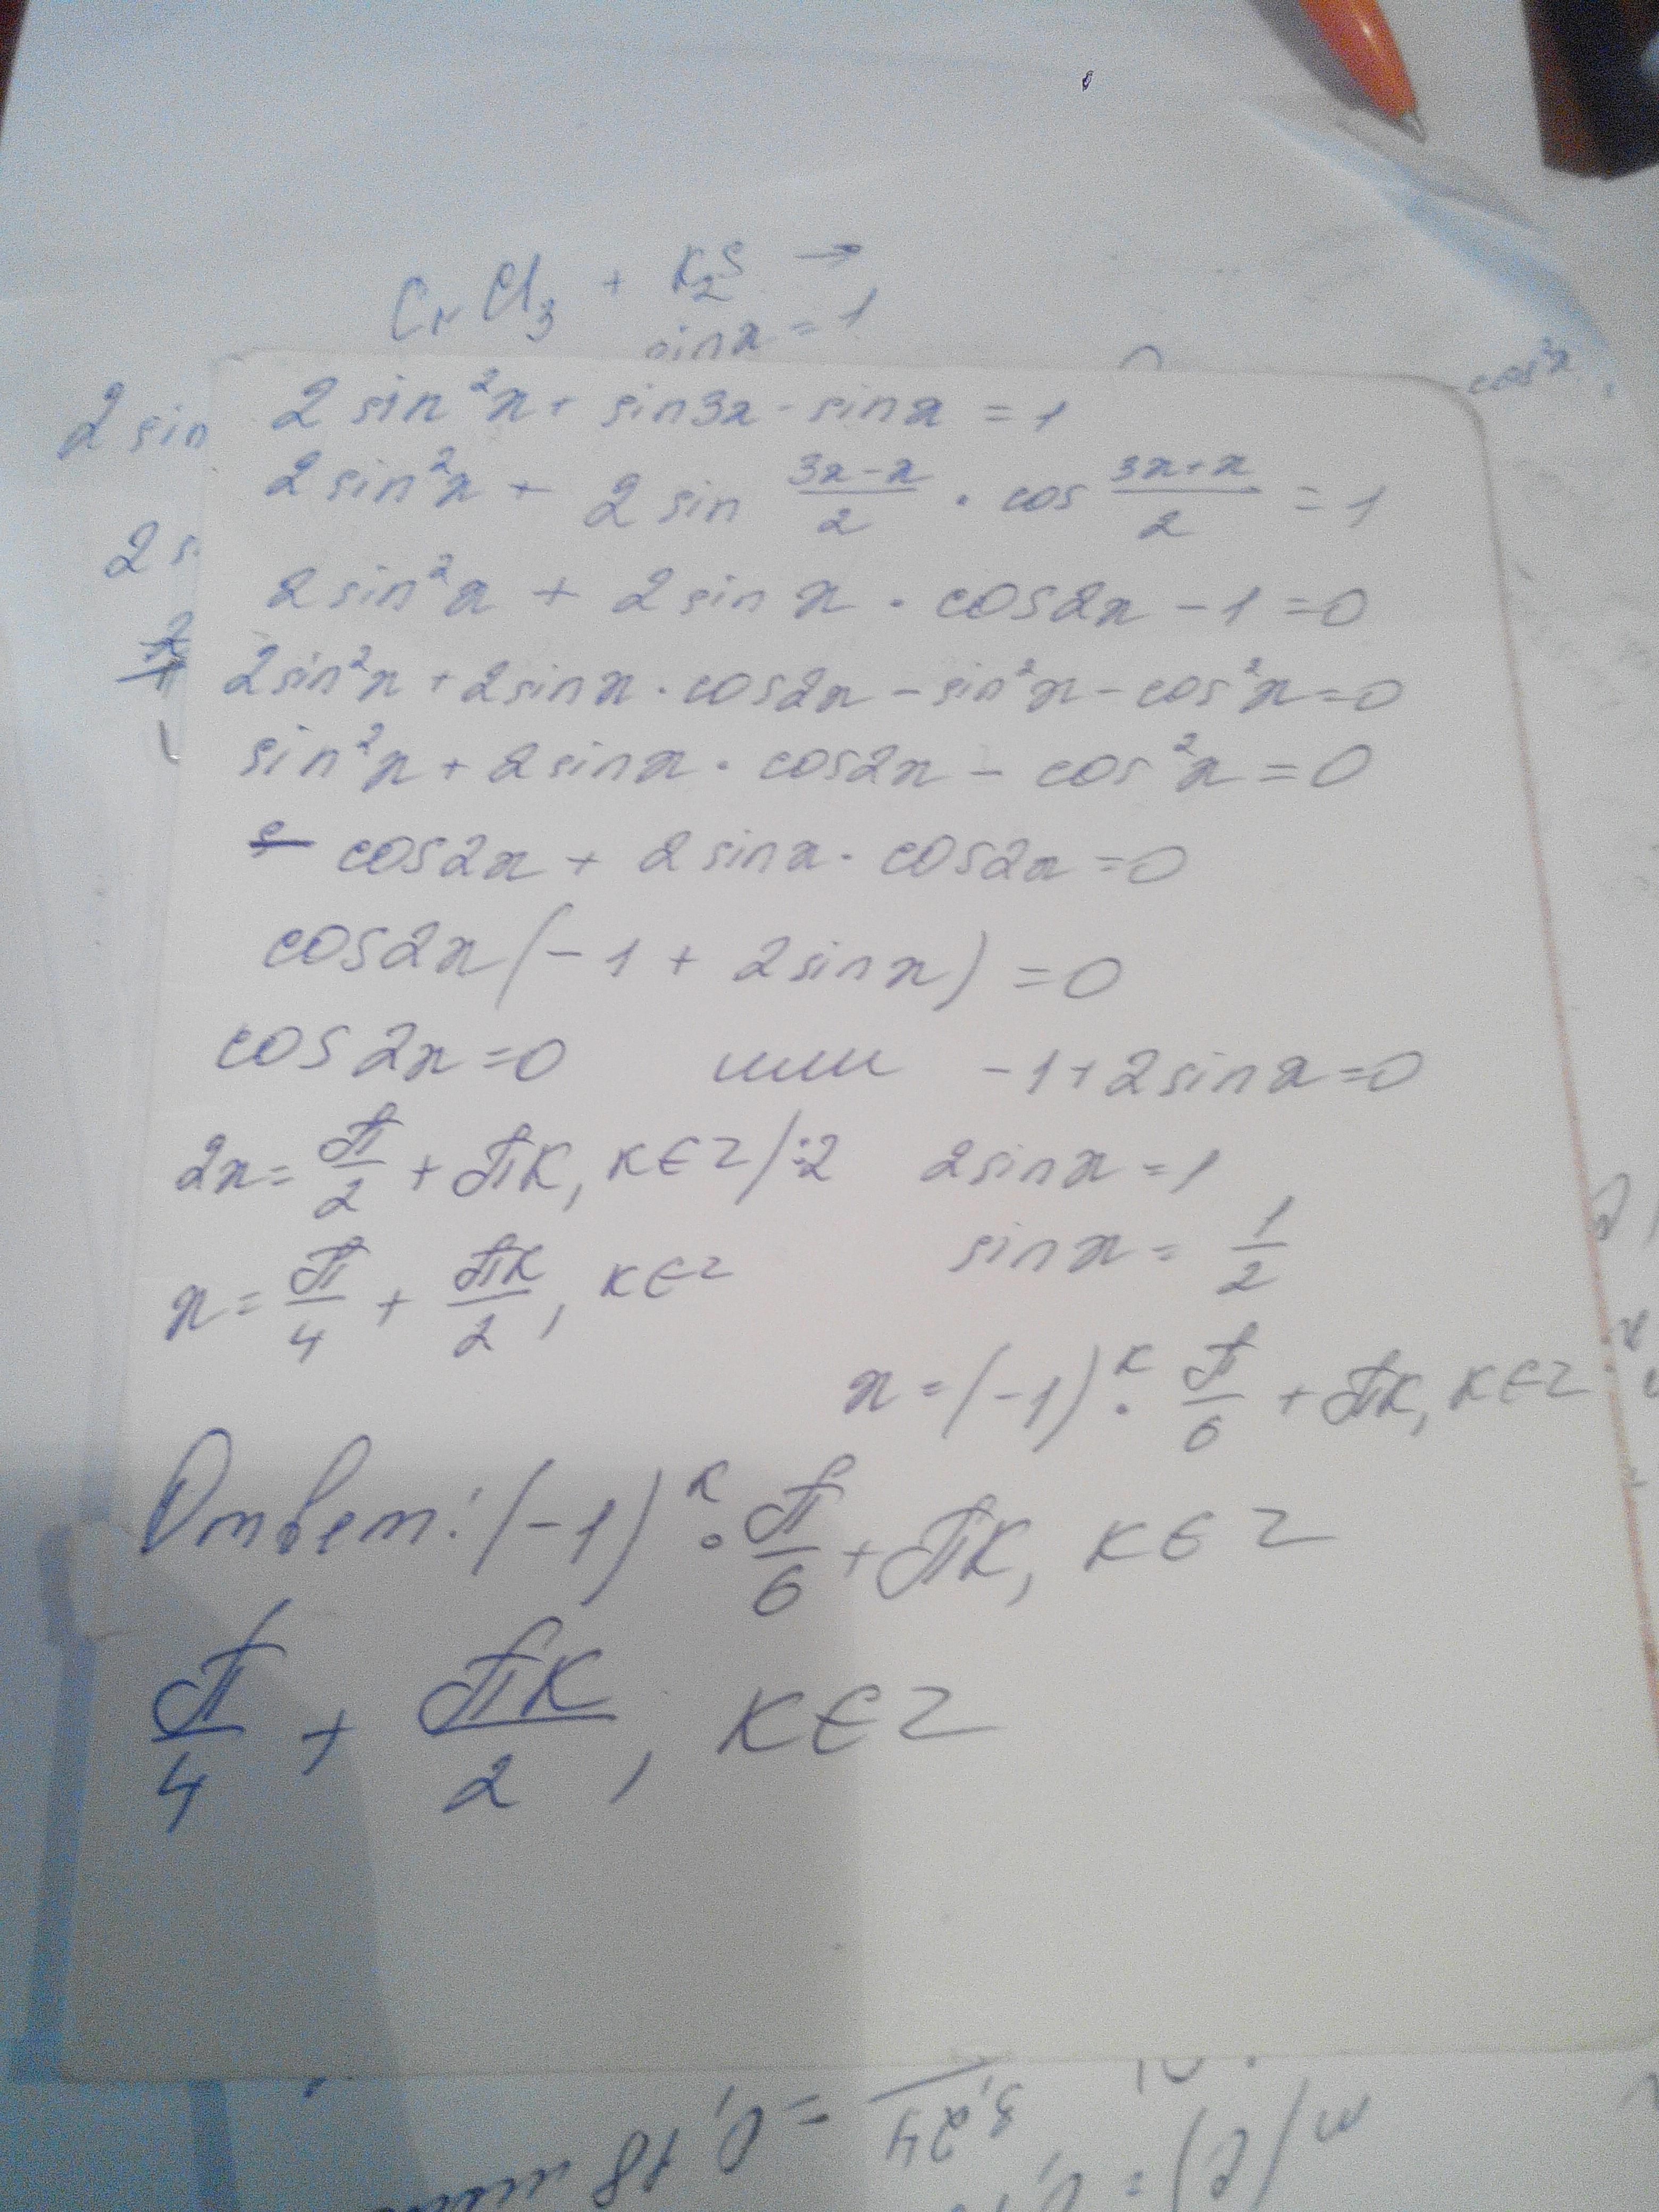 CrCl₃ + K₂S →
sinx = 1
cos²x
2 sin
2 sin²x + sin3x - sinx = 1
2 sin²x + 2 sin (3x-x)/2 · cos (3x+x)/2 = 1
2 s
2sin²x + 2sinx · cos2x - 1 = 0
2sin²x + 2sinx · cos2x - sin²x - cos²x = 0
sin²x + 2sinx · cos2x - cos²x = 0
- cos2x + 2sinx · cos2x = 0
cos2x(-1 + 2sinx) = 0
cos2x = 0 или -1+2sinx = 0
2x = π/2 + πк, к∈Z /:2 2sinx = 1
x = π/4 + πк/2, к∈Z sinx = 1/2
x = (-1)ᴷ · π/6 + πк, к∈Z
Ответ: (-1)ᴷ · π/6 + πк, к∈Z
π/4 + πк/2, к∈Z
3,24 = 0,18
m(